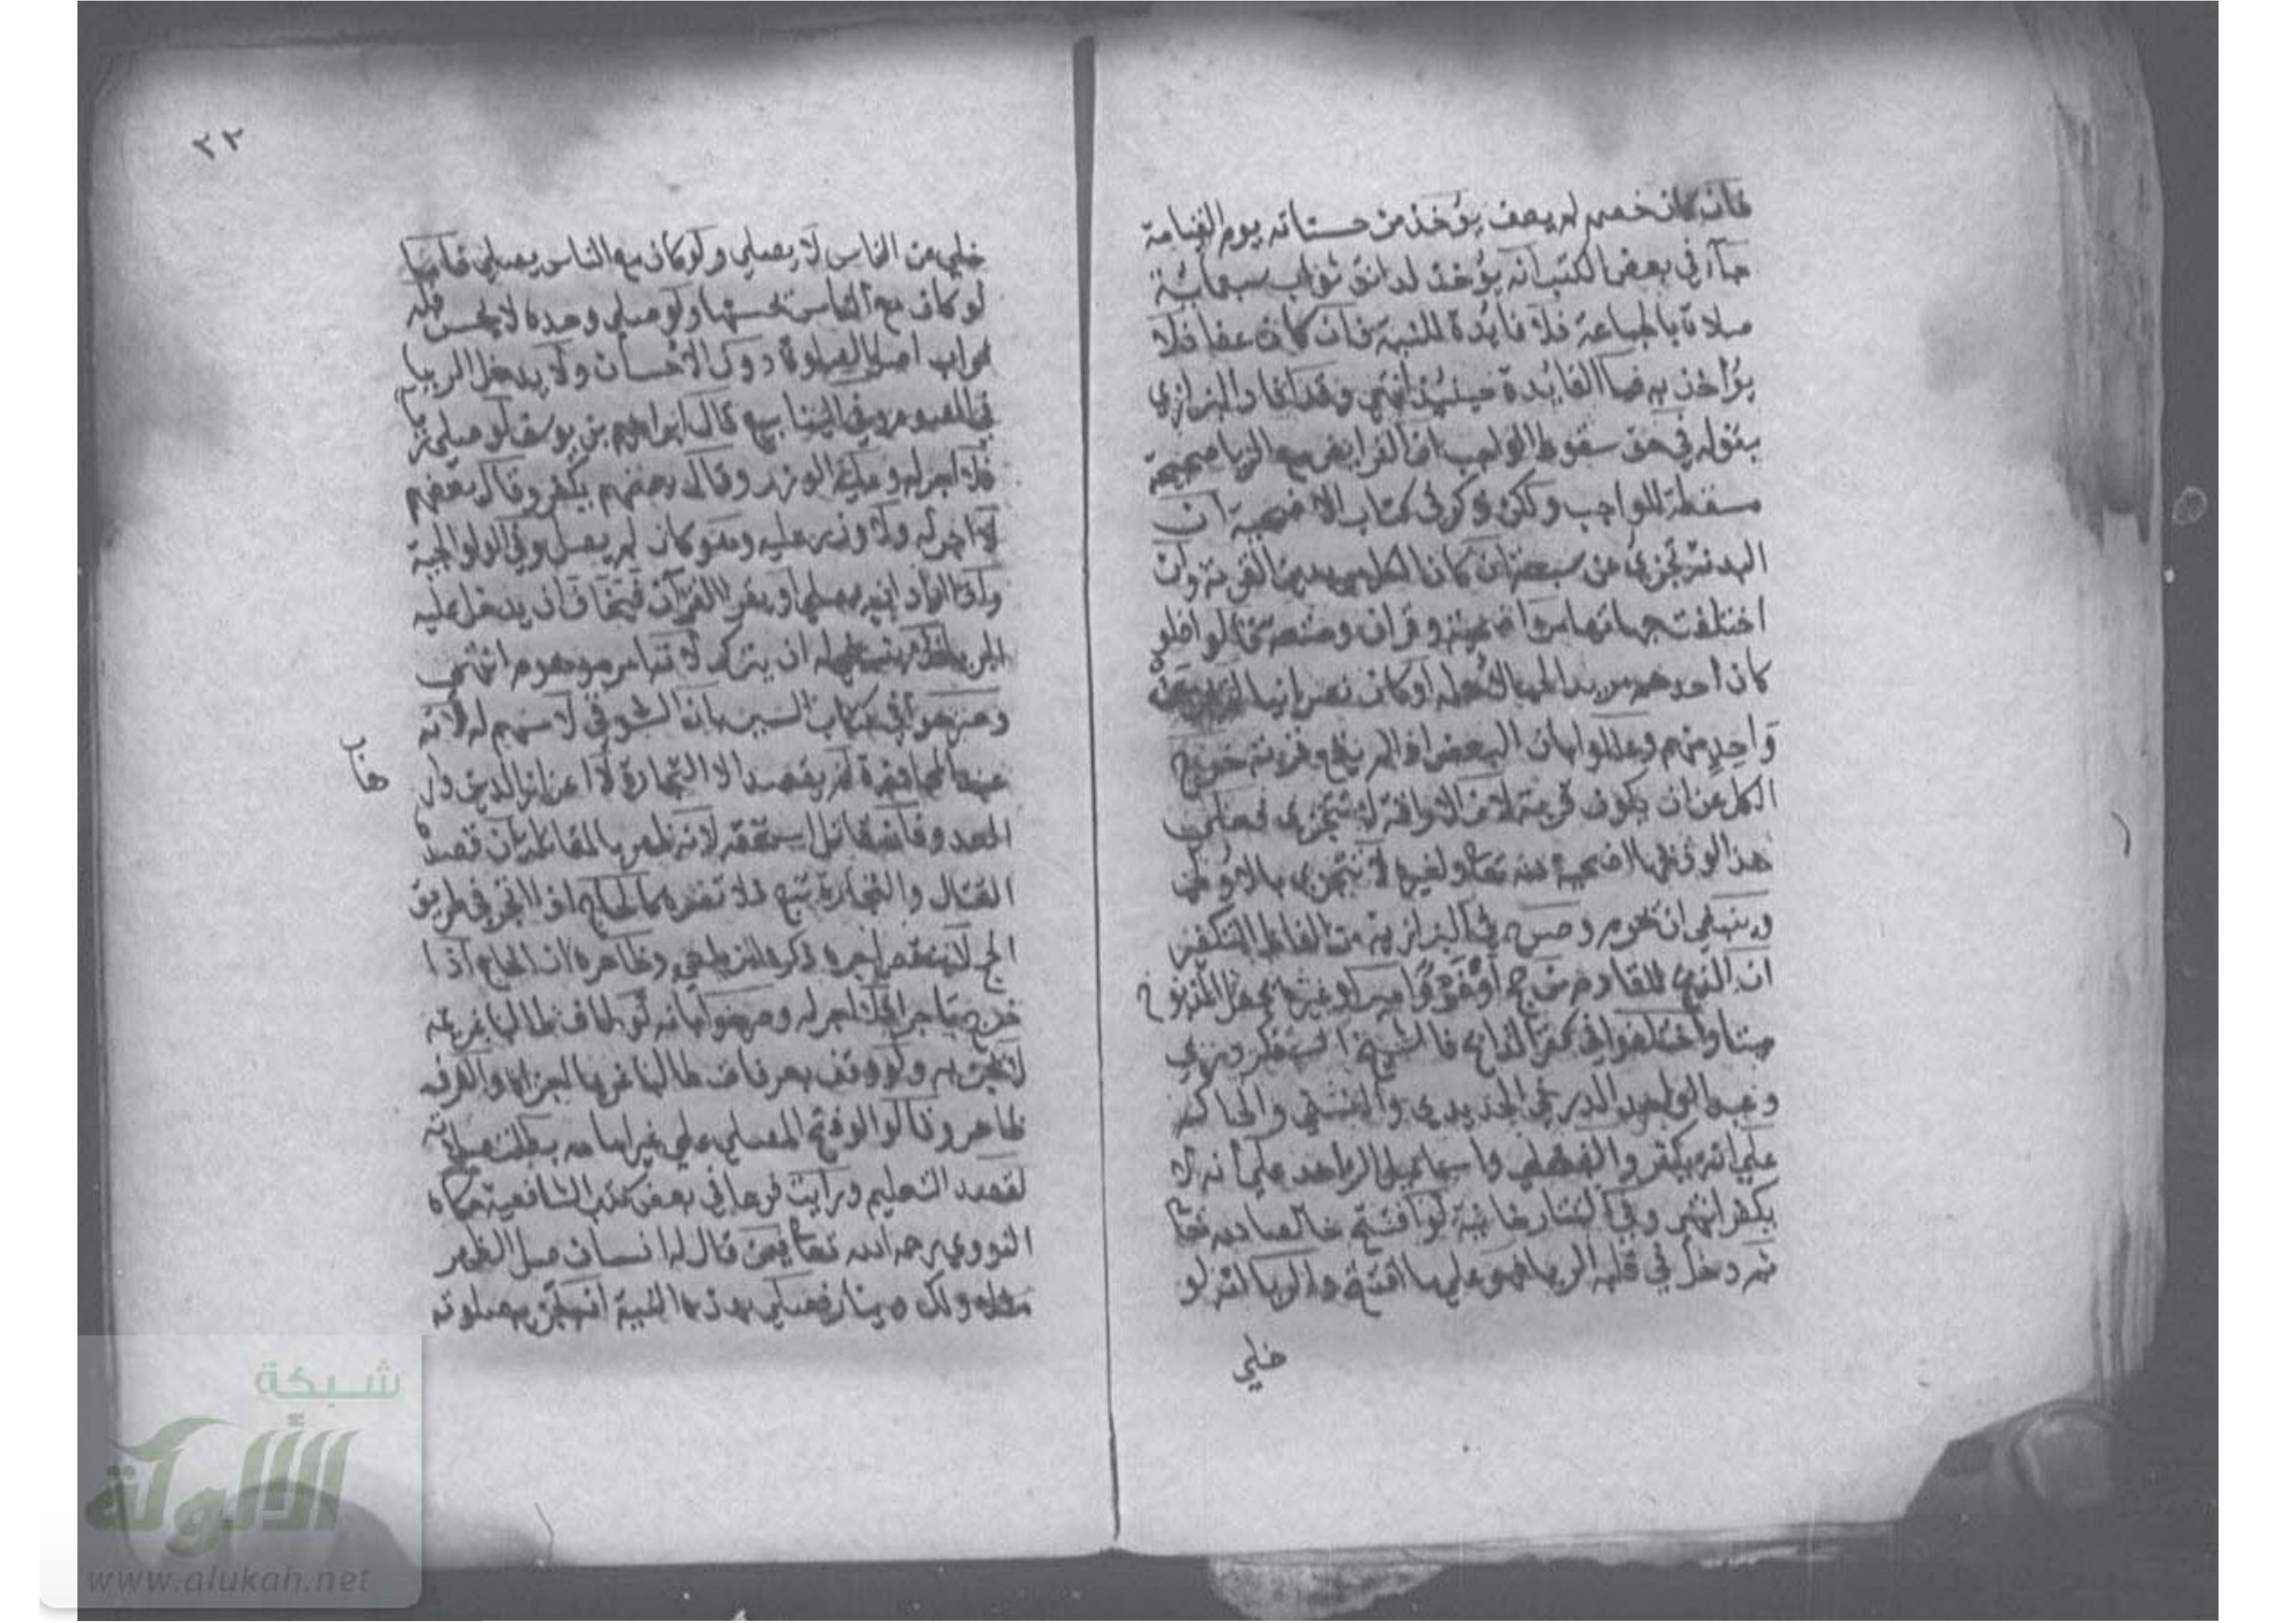 فان كان خصم لم يعف يؤخذ من حسناته يوم القيامة
جآء في بعض الكتب انه يؤخذ لدانق ثواب سبعمائة
صلاة بالجماعة فلا فائدة للنية فان كان عفا فلا
يؤاخذ به فما الفائدة حينئذ انتهي وقد افاد البزازي
بقوله في حق سقوط الواجب ان الفرايض مع الريا صحيحة
مسقطة للواجب ولكن ذكر في كتاب الاضحية ان
البدنة تجزي عن سبعة ان كان الكل مريدين القربة وان
اختلفت جهاتها من اضحية وقران ومتعة قالوا فلو
كان احدهم مريد الحما لاهله او كان نصرانيا لم
واحد منهم وعللوا بان البعض اذا لم يقع قربة خرج
الكل عن ان يكون قربة لان الاراقة لا تتجزي فعلي
هذا لو ذبحها اضحية لله تعا ولغيره لا تجزي بالاولي
وينبغي ان تحرم وصرح في البزازية من الفاظ التكفير
ان الذبح للقادم من حج او غزو او امير او غيره يجعل المذبوح
ميتا واختلفوا في كفر الذابح فالشيخ السفكردري
وعبد الواحد الدرقي الحديدي والنسفي والحاكم
علي انه يكفر والفضلي واسماعيل الزاهد علي أنه لا
يكفر انتهي وفي التتارخانية لو افتتح خالصا لله تعا
ثم دخل في قلبه الريا فهو علي ما افتتح والريا انه لو
خلي
٢٣
خلي عن الناس لا يصلي ولو كان مع الناس يصلي فاما
لو كان مع الناس تحسنها ولو صلي وحده لا يحسن فله
ثواب اصل الصلوة دون الاحسان ولا يدخل الريا
في الصوم وفي الينابيع قال ابراهيم بن يوسف لو صلي ريا
فلا اجر له وعليه الوزر وقال بعضهم يكفر وقال بعضهم
لا اجر له ولا وزر عليه وهو كان لم يصل وفي الولوالجية
واذا اراد انه يصلي او يقرا القرآن فيخاف ان يدخل عليه
الريا فلا ينبغي له ان يترك لانه امر موهوم انتهي
وصرحوا في كتاب السير بان السوقي لا سهم له لانه
عند المجاوزة لم يقصد الا التجارة لا اعزاز الدين وار
هاب
العدو فان قاتل استحقه لانه ظهر بالمقاتلة ان قصده
القتال والتجارة تبع فلا تضره كالحاج اذا اتجر في طريق
الحج لا ينقص اجره ذكره الزيلعي وظاهره ان الحاج اذا
خرج تاجرا فلا اجر له وصرحوا بانه لو طاف طالبا غريمه
لا يجزيه ولو وقف بعرفات طالبا غريما اجزاه والفرق
ظاهر وقالوا لو فتح المصلي علي غير امامه بطلت صلاته
لقصد التعليم ورايت فرعا في بعض كتب الشافعية حكاه
النووي رحمه الله تعا فيمن قال له انسان صل الظهر
ولك دينار فصلي بهذه النية انه تجزيه صلوته
شبكة
الألوكة
www.alukah.net